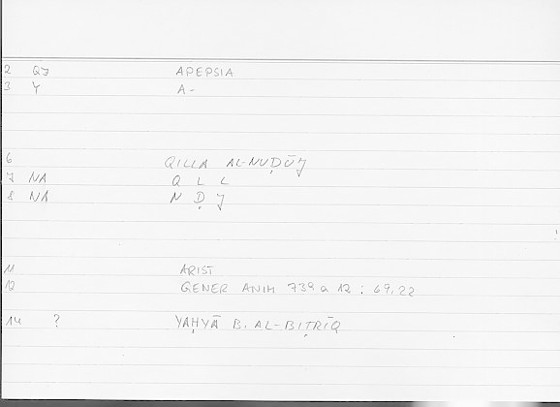 2 QJ APEPSIA
3 Y A-
6 QILLA AL-NUḌŪJ
7 NA Q L L
8 NA N Ḍ J
11 ARIST
12 GENER ANIM 739 a 12 : 69,22
14 ? YAḤYĀ B. AL-BIṬRĪQ